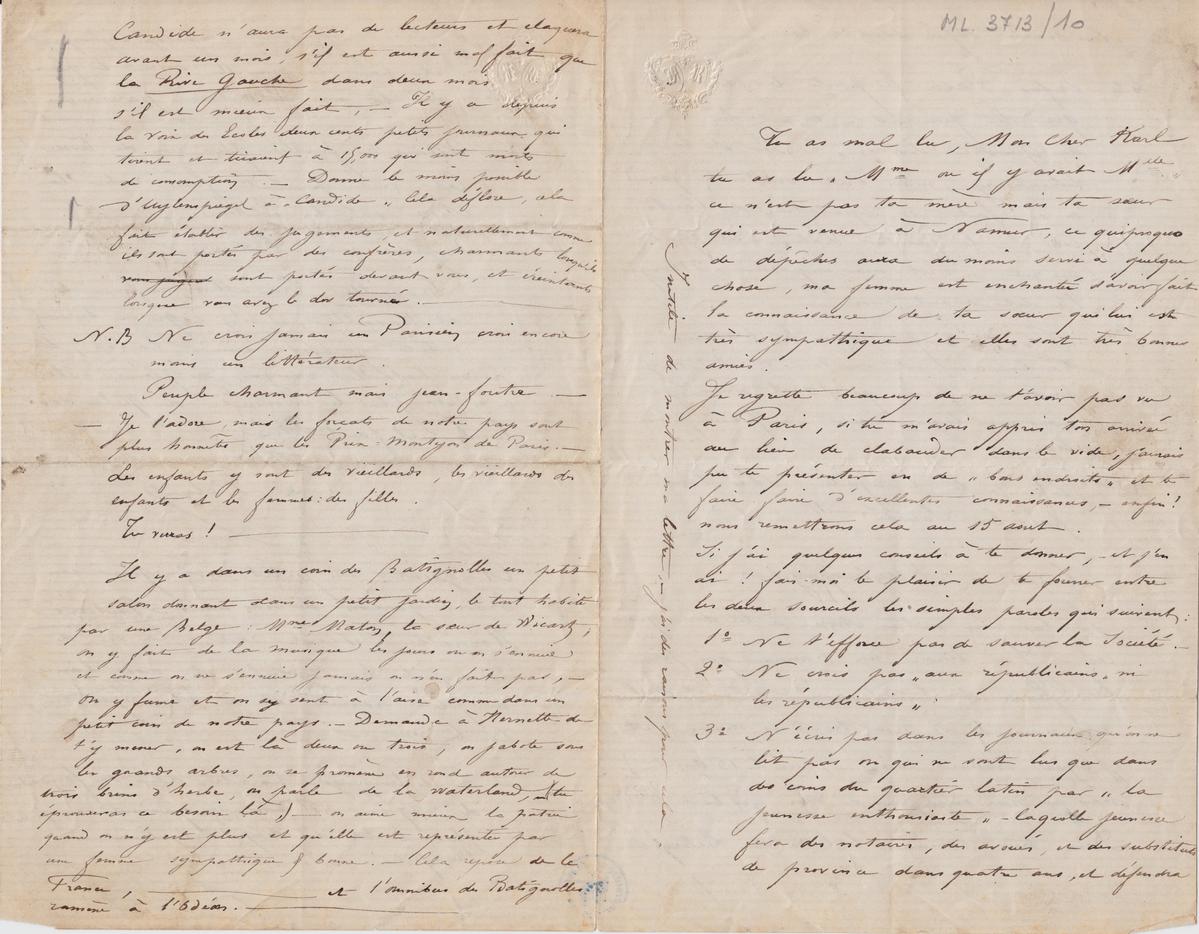 ML. 3713/10
Tu as mal lu, Mon Cher Karl
tu as lu „ Mme où il y avait Melle „
ce n'est pas ta mère mais ta sœur
qui est venue à Namur, ce quiproquo
de dépêches aura du moins servi à quelque
chose, ma femme est enchantée d'avoir fait
la connaissance de ta sœur qui lui est
très sympathique et elles sont très bonnes
amies.
Je regrette beaucoup de ne t'avoir pas vu
à Paris, si tu m'avais appris ton arrivée
au lieu de clabauder dans le vide, j'aurais
pu te présenter en de „ bons endroits „ et te
faire faire d'excellentes connaissances, – enfin !
nous remettrons cela au 15 aout.
Si j'ai quelques conseils à te donner, – et j'en
ai ! fais-moi le plaisir de te fourrer entre
les deux sourcils les simples paroles qui suivent :
1º Ne t'efforce pas de sauver la Société. –
2º Ne crois pas „ aux républicains „ ni
les républicains „
3º N'écris pas dans les journaux qu'on ne
lit pas ou qui ne sont lus que dans
des coins du quartier latin par „ la
jeunesse enthousiaste „ – laquelle jeunesse
fera des notaires, des avoués, et des substituts
de province dans quatre ans, et défendra
Inutile de montrer ma lettre, – j'ai des raisons pour cela.
Candide n'aura pas de lecteurs et claquera
avant un mois, s'il est aussi mal fait que
la Rive Gauche dans deux mois
s'il est mieux fait, – Il y a depuis
la voix des Ecoles deux cents petits journaux qui
tirent et tiraient à 15,000 qui sont morts
de consomption. – Donne le moins possible
d'Uylenspiegel à „ Candide „ Cela déflore, cela
fait établir des jugements, et naturellement comme
ils sont portés par des confrères, charmants lorsqu'ils
sont portés devant vous, et éreintants
lorsque vous avez le dos tourné.
N.B Ne crois jamais un Parisien crois encore
moins un littérateur.
Peuple charmant mais jean-foutre. –
– Je l'adore, mais les forçats de notre pays sont
plus honnêtes que les Prix-Montyon de Paris. –
Les enfants y sont des vieillards, les vieillards des
enfants et les femmes : des filles.
Tu verras !
Il y a dans un coin des Batignolles un petit
salon donnant dans un petit jardin, le tout habité
par une Belge : Mme Maton, la sœur de Dicart,
on y fait de la musique les jours où on s'ennuie
et comme on ne s'ennuie jamais on n'en fait pas, –
on y fume et on s'y sent à l'aise comme dans un
petit coin de notre pays. – Demande à Hernette de
t'y mener, on est là deux ou trois, on papote sous
les grands arbres, on se promène en rond autour de
trois brins d'herbe, on parle de la waterland, (tu
éprouveras ce besoin là,) – on aime mieux la patrie
quand on n'y est plus et qu'elle est représentée par
une femme sympathique & bonne. – Cela repose de la
France, et l'omnibus des Batignolles
ramène à l'Odéon. –